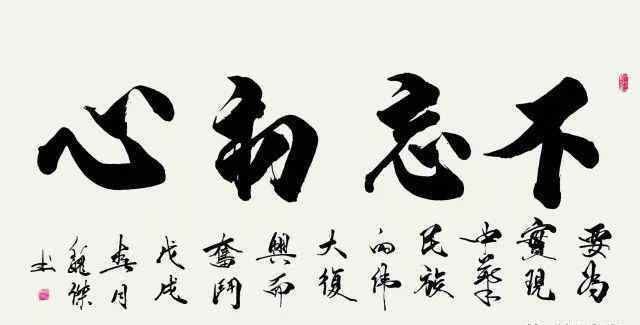 不忘初心
要为
實現
中華
民族
的偉
大復
興而
奮鬥
戊戌
春月
魏傑
书